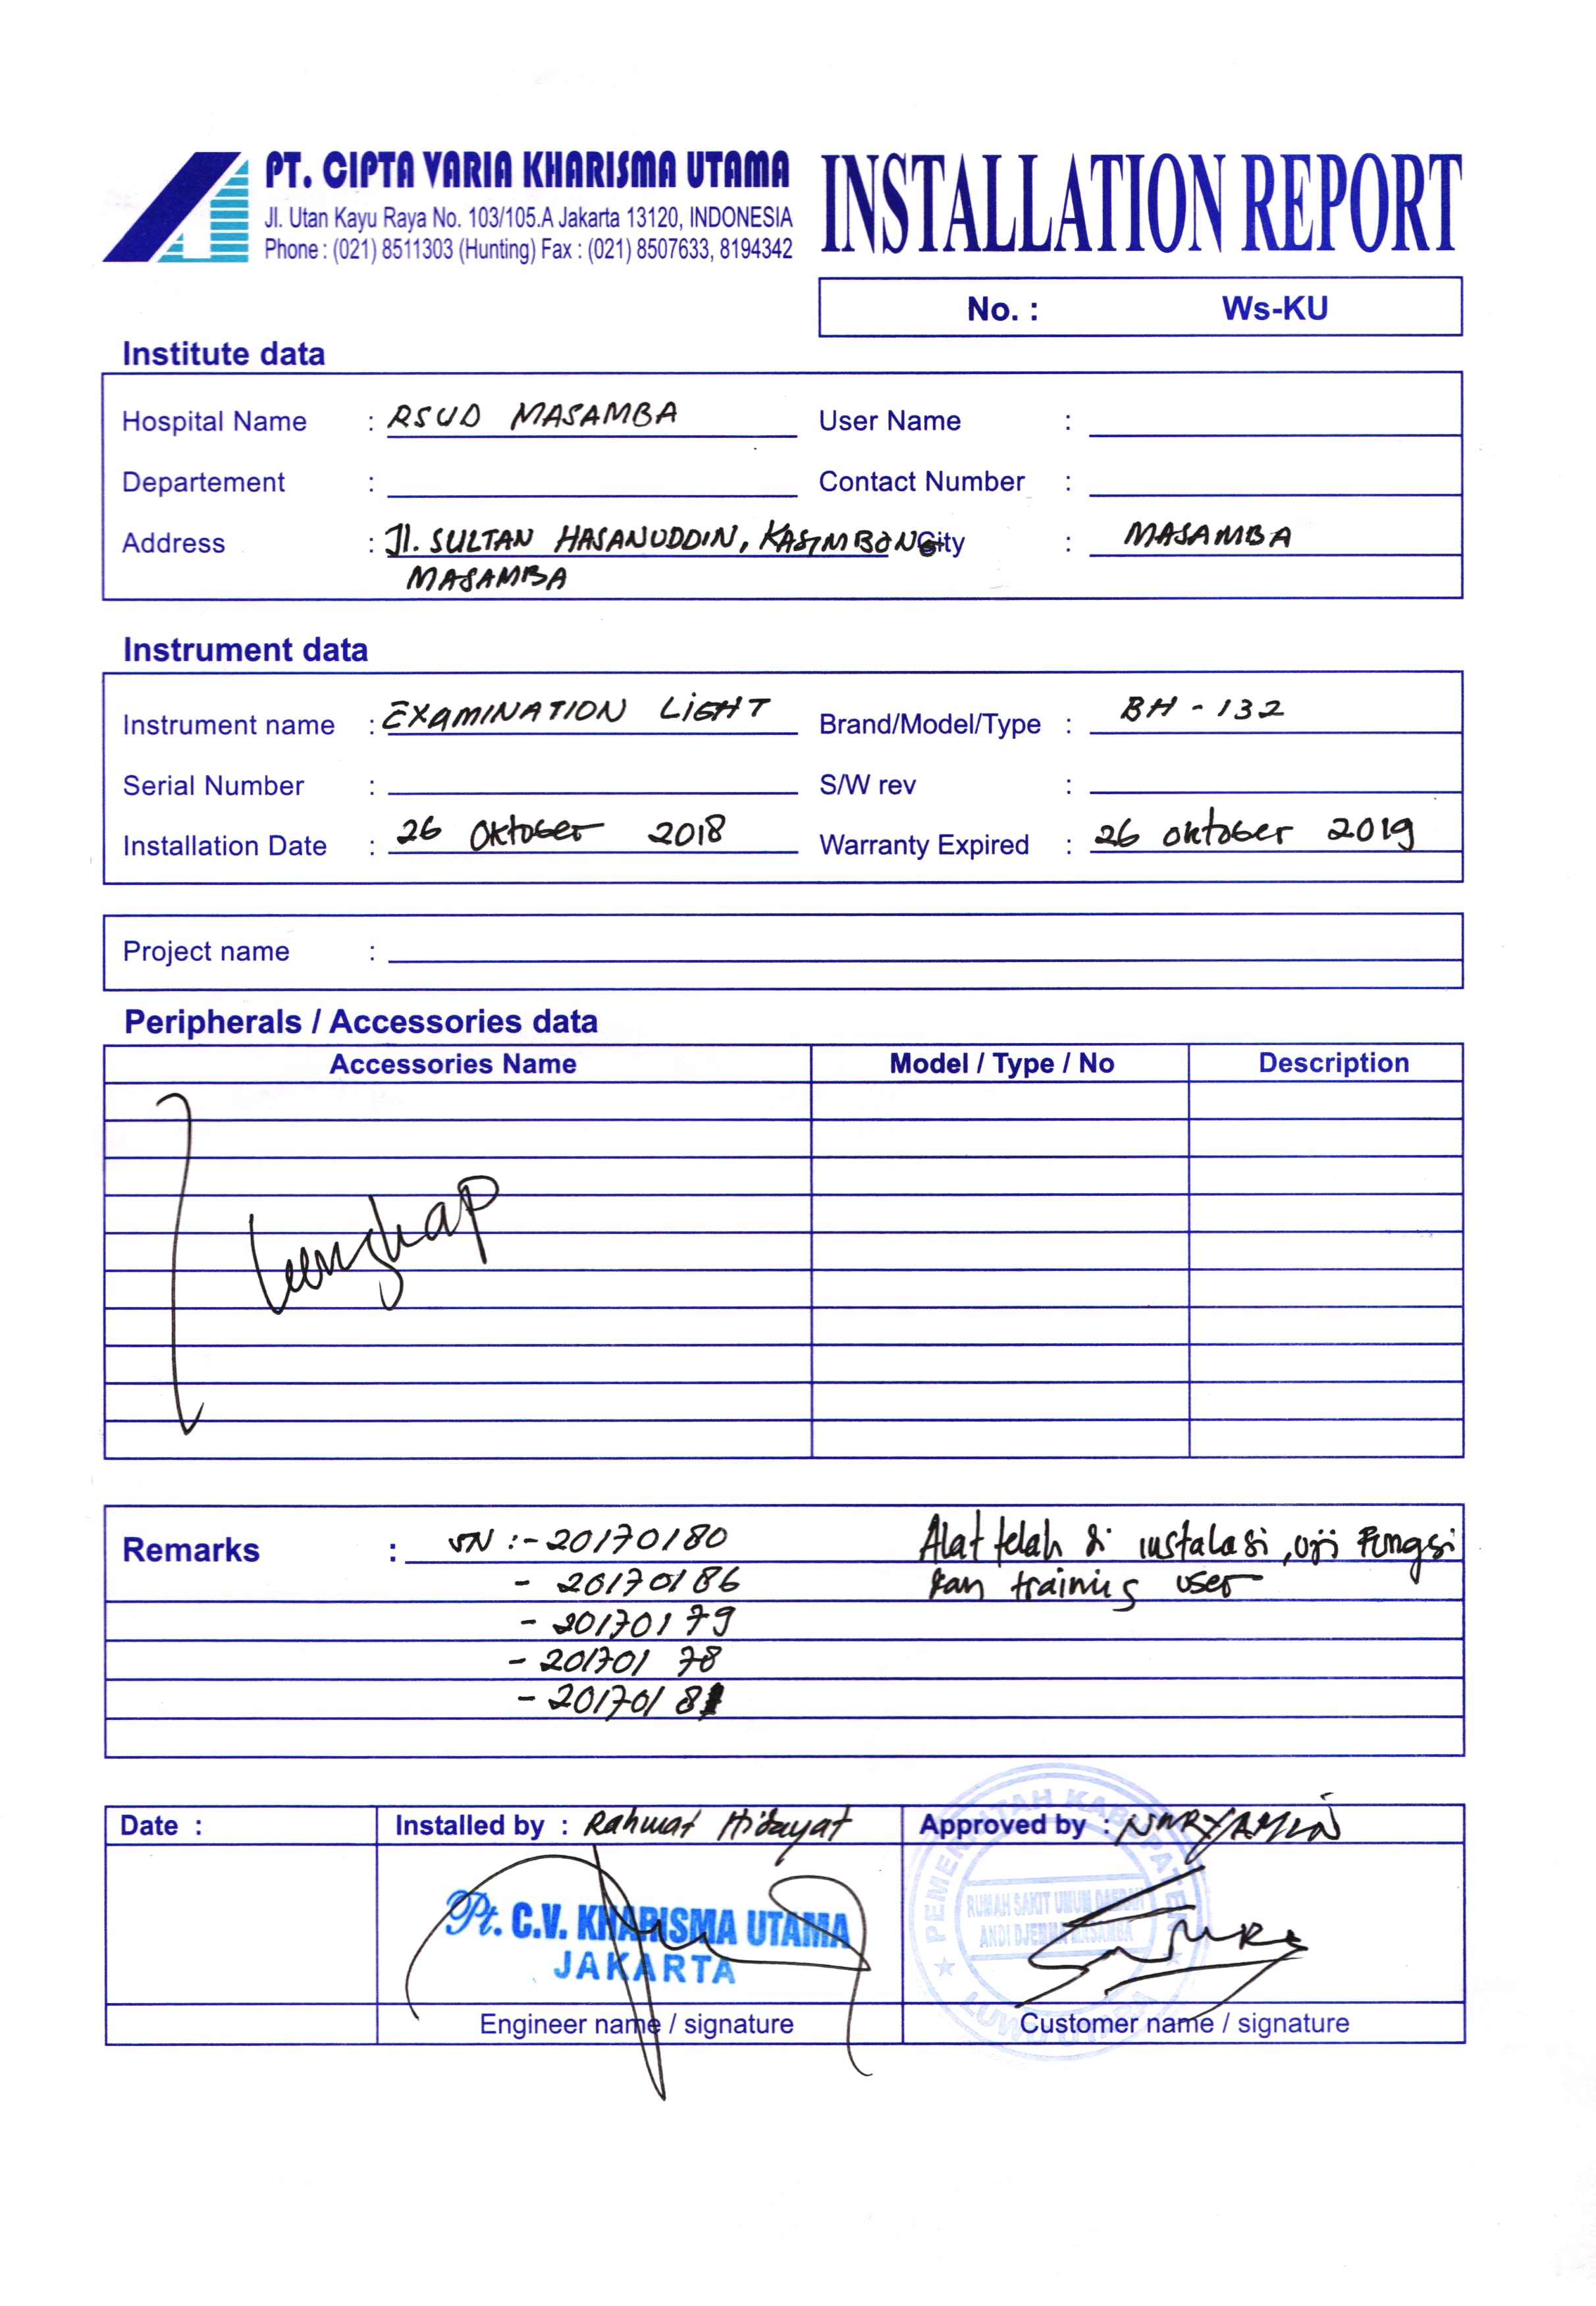 PT. CIPTA VARIA KHARISMA UTAMA
Jl. Utan Kayu Raya No. 103/105.A Jakarta 13120, INDONESIA
Phone : (021) 8511303 (Hunting) Fax : (021) 8507633, 8194342
INSTALLATION REPORT
No. : Ws-KU
Institute data
Hospital Name : RSUD MASAMBA User Name :
Departement : Contact Number :
Address : Jl. SULTAN HASANUDDIN, KASIMBONG City : MASAMBA
MASAMBA
Instrument data
Instrument name : EXAMINATION LIGHT Brand/Model/Type : BH - 132
Serial Number : S/W rev :
Installation Date : 26 Oktober 2018 Warranty Expired : 26 oktober 2019
Project name :
Peripherals / Accessories data
Accessories Name Model / Type / No Description
Lengkap
Remarks : SN :- 20170180 Alat telah di instalasi, uji Fungsi
- 20170186 dan training user
- 20170179
- 20170178
- 2017018
Date : Installed by : Rahmat Hidayat Approved by : NURYAMIN
Pt. C.V. KHARISMA UTAMA
JAKARTA
PEMERINTAH KABUPATEN
RUMAH SAKIT UMUM DAERAH
ANDI DJEMMA MASAMBA
LUWU UTARA
Engineer name / signature Customer name / signature